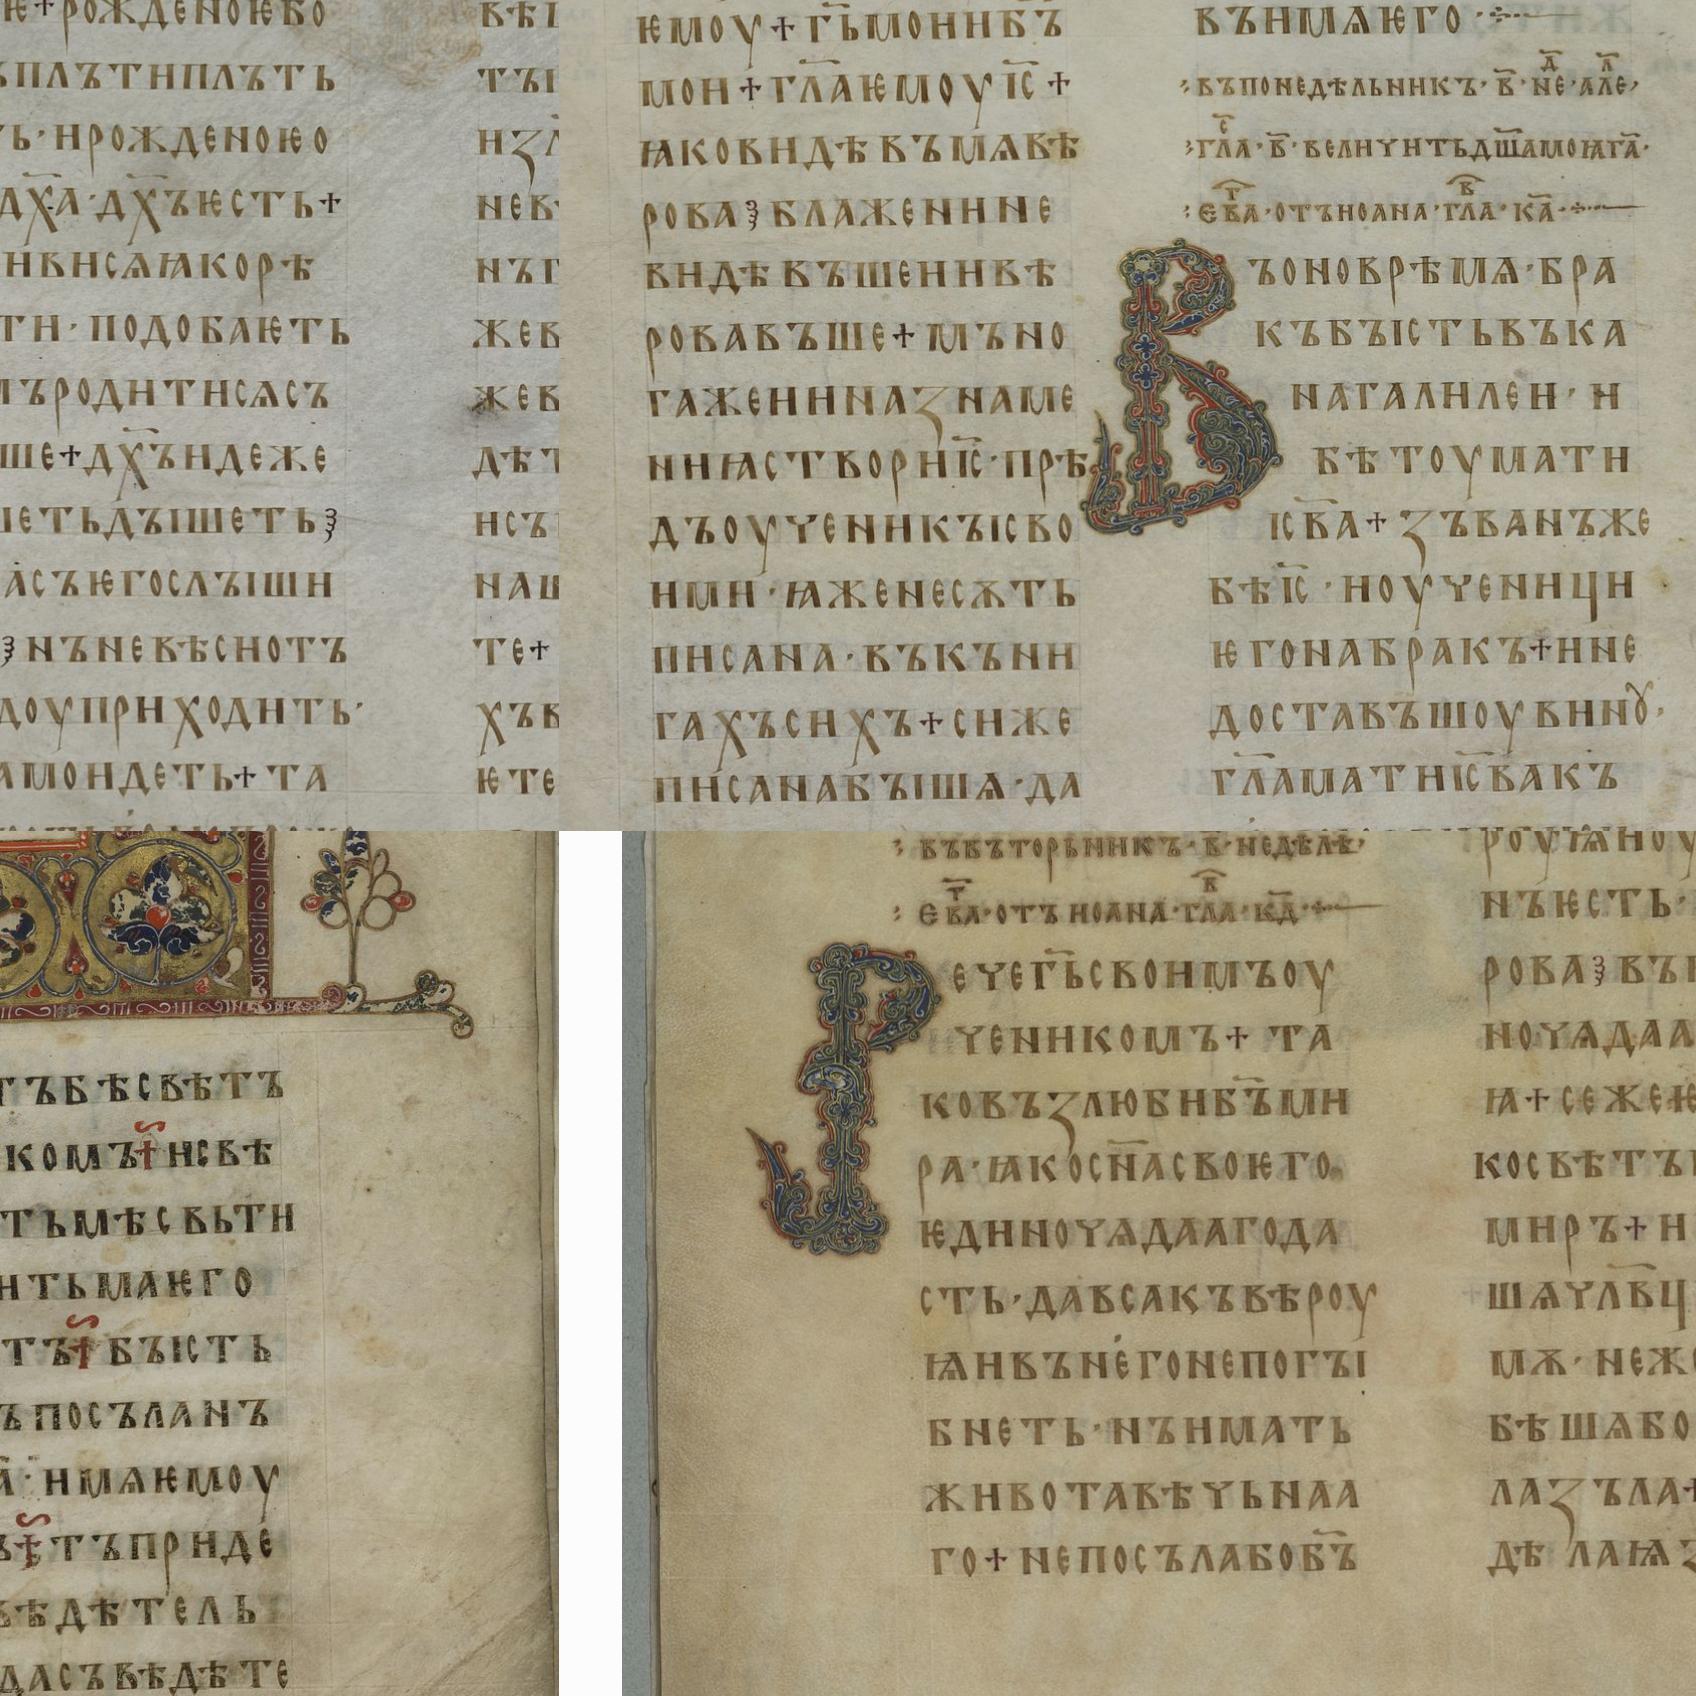 рожденоѥбо
ъплътнплъть
ь·нрожденоѥо
дх҃а·дх҃ъѥсть+
нвнсѧꙗкорѣ
тн·подобаѥть
ъроднтнсѧсъ
ше+дх҃ъндеже
шетьдꙑшеть
асъѥгослꙑшн
нъневѣснотъ
доупрнходнть·
амондеть+та
ѥмоу+г҃ьмоннб҃ъ
мон+гл҃аѥмоуі҃с+
ꙗковндѣвъмѧвѣ
рова блаженнне
вндѣвъшеннвѣ
ровавъше+мъно
гаженнназнаме
ннꙗстворні҃с·прѣ
дъоуученнкꙑсво
нмн·ꙗженесѫть
пнсана·въкънн
гахъснхъ+снже
пнсанабꙑшѧ·да
вънмѧѥго
въпонедѣльннкъ·в҃·не·але
гл҃а·в҃·велнчнтьдш҃амоꙗг҃а·
ев҃а·отъноана·гл҃а·к҃а·
Въоноврѣмѧ·бра
къбꙑстьвъка
нагалнлен·н
бѣтоуматн
іс҃ва+зъванъже
бѣі҃с·ноученнцн
ѥгонабракъ+нне
доставъшоувнноу·
гл҃аматні҃свакъ
тъбѣсвѣтъ
комъ+нсвѣ
тьмѣсвьтн
нтьмаѥго
тъ+бꙑсть
ъпосъланъ
нмѧѥмоу
тъпрнде
ѣдѣтель
дасъвѣдѣте
въвъторьннкъ·в҃·недѣлѣ·
ев҃а·отъноана·гл҃а·к҃д·
Речег҃ьсвонмъоу
ченнкомъ+та
ковъзлюбнб҃ъмн
ра·ꙗкосн҃асвоѥго
ѥднночѧдаагода
сть·давсакъвѣроу
ѩнвънегонепогꙑ
бнеть·нъннмать
жнвотавѣчьнаа
го+непосълабоб҃ъ
нъѥсть·
рова въ
ночѧдаа
ꙗ+сежеѥ
косвѣтъ
мнръ+н
шѧчл҃вц
мѫ·неж
бѣшѧбо
лазъла+
дѣлаꙗ